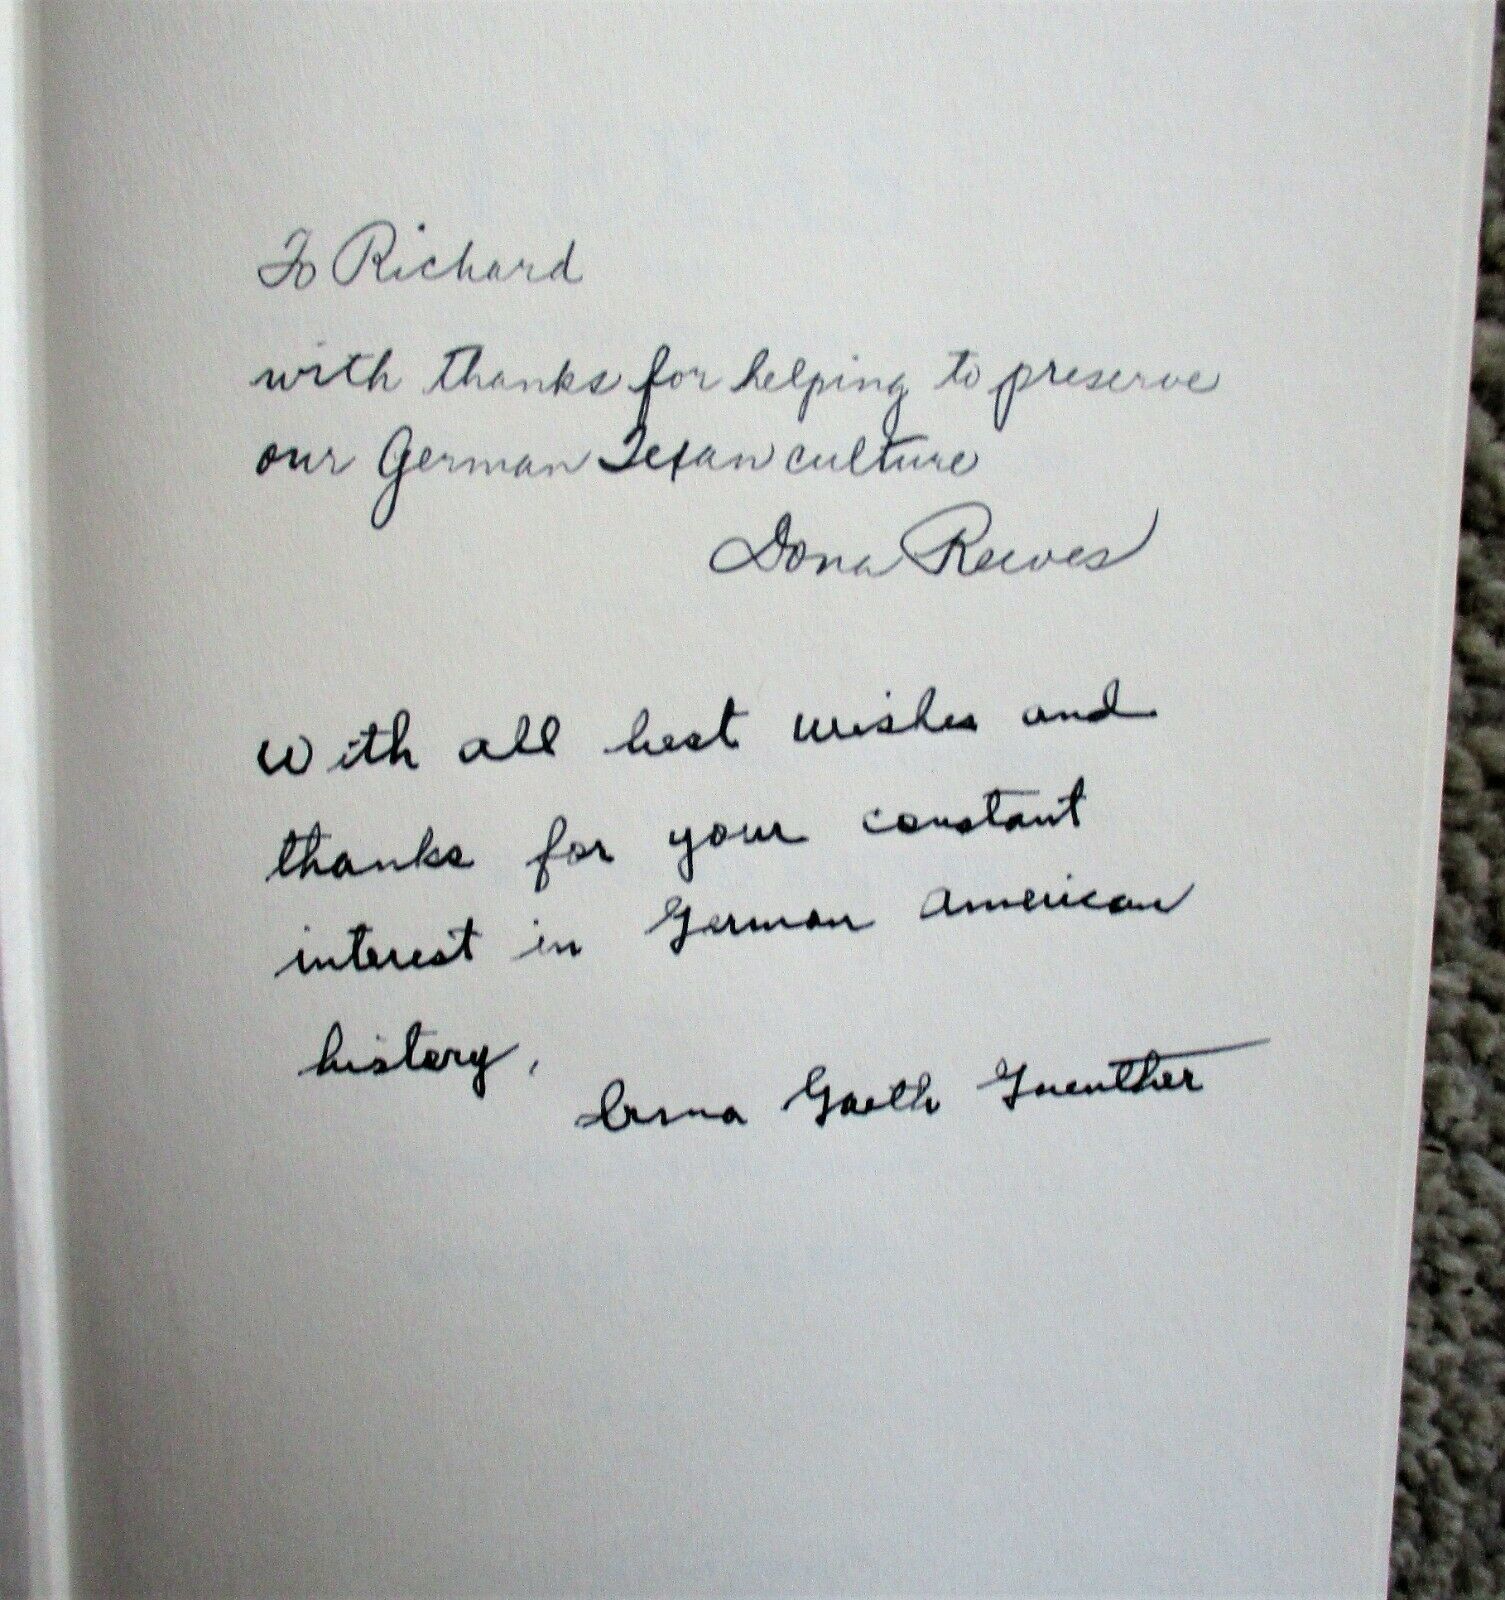 To Richard
with thanks for helping to preserve
our German Texan culture
Dona Reeves
With all best wishes and
thanks for your constant
interest in German American
history.
Irma Goeth Guenther